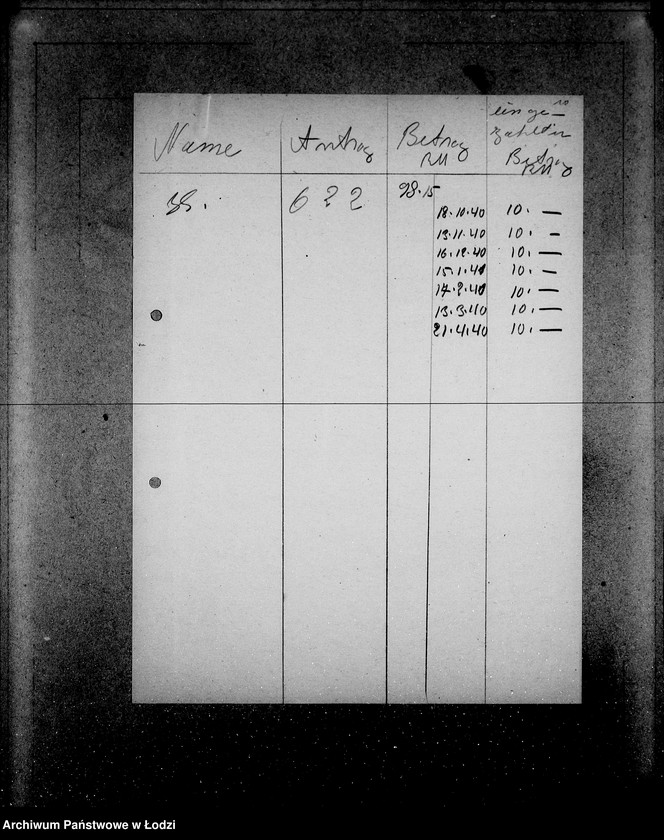 Name Antrag Betrag RM einge-
zahlter
Betrag
RM
622 98.15
18.10.40 10.—
19.11.40 10.—
16.12.40 10.—
15.1.41 10.—
17.2.41 10.—
13.3.40 10.—
21.4.40 10.—
Archiwum Państwowe w Łodzi